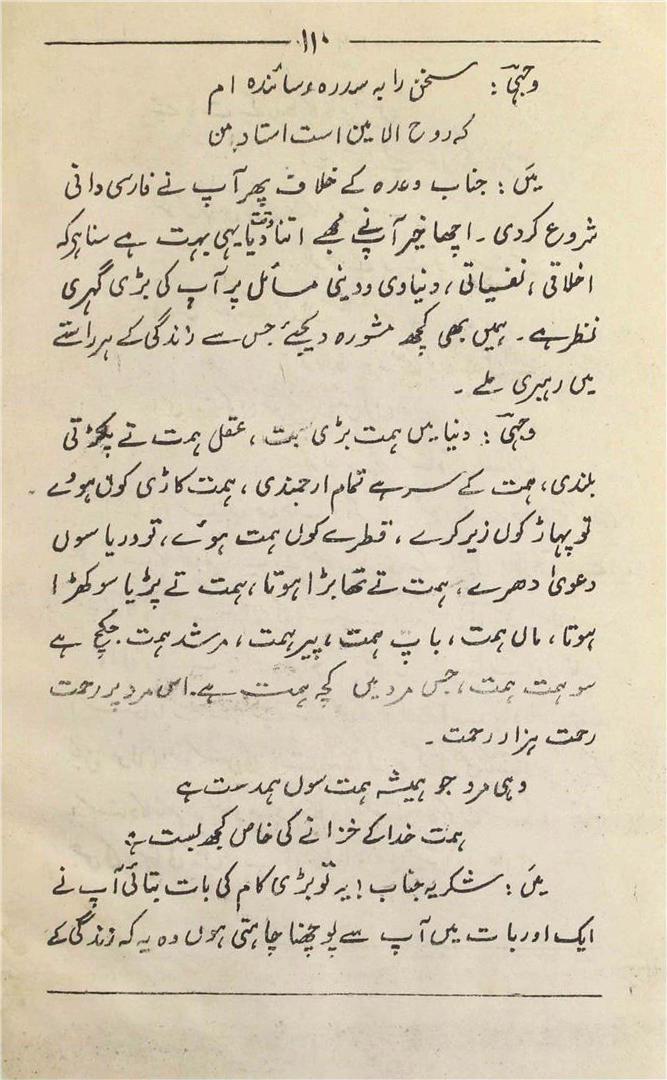 ۱۱۰
وجہیؔ : سخن را بہ سدرہ رسانندہ ام
کہ روح الامین است استاد من
میںؔ : جناب وعدہ کے خلاف پھر آپ نے فارسی دانی
شروع کردی ۔ اچھا خیر آپ نے مجھے اتنا وقت دیا یہی بہت ہے سنا ہے کہ
اخلاقی ، نفسیاتی ، دنیاوی و دینی مسائل پر آپ کی بڑی گہری
نظر ہے ۔ ہمیں بھی کچھ مشورہ دیجئے جس سے زندگی کے ہر راستے
میں رہبری ملے ۔
وجہیؔ : دنیا میں ہمت بڑی بہت ، عقل ہمت تے پکڑتی
بلندی ، ہمت کے سر ہے تمام ارجمندی ، ہمت کاڑی کوں ہوے
تو پہاڑ کوں زیر کرے ، قطرے کوں ہمت ہوے ، تو دریا سوں
دعویٰ دھرے ، ہمت تے تھا بڑا ہوتا ، ہمت تے پڑیا سو کھڑا
ہوتا ، ماں ہمت ، باپ ہمت ، پیر ہمت ، مرشد ہمت جکچ ہے
سو ہمت ہمت ، جس مرد میں کچہ ہمت ہے ۔ اس مرد پر رحمت
رحمت ہزار رحمت ۔
وہی مرد جو ہمیشہ ہمت سوں ہمدست ہے
ہمت خدا کے خزانے کی خاص کچھ بست ہے
میںؔ : شکریہ جناب ! یہ تو بڑی کام کی بات بتائی آپ نے
ایک اور بات میں آپ سے پوچھنا چاہتی ہوں وہ یہ کہ زندگی کے